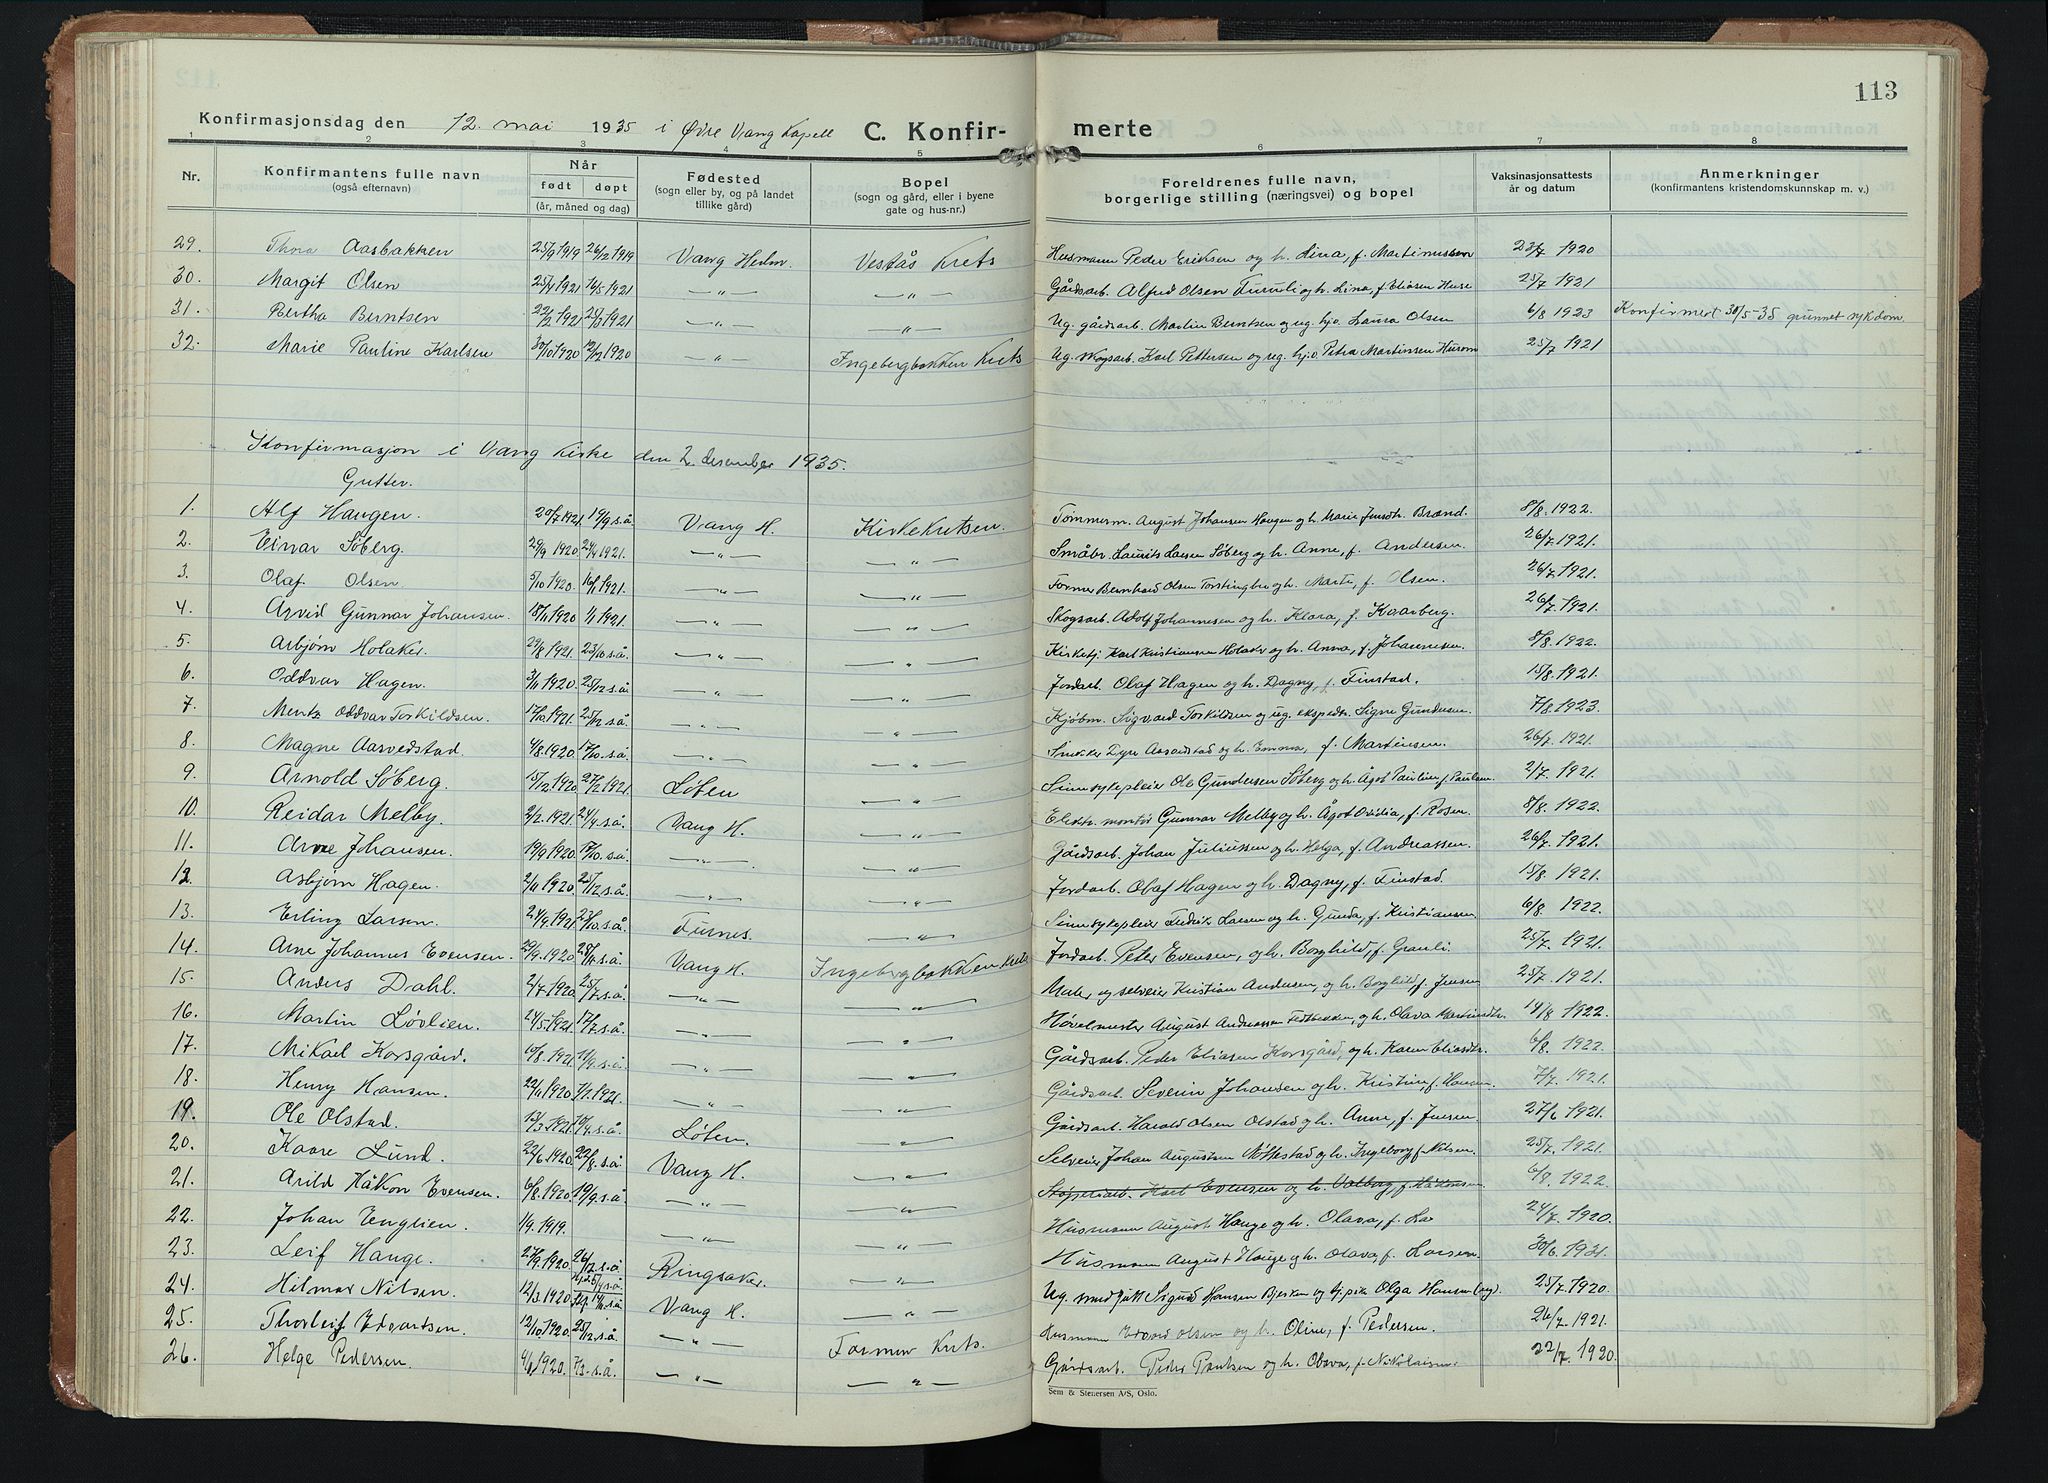 113
Konfirmasjonsdag den 12. mai 1935 i Øvre Vang Kapell C. Konfir- merte
1 2 3 4 5 6 7 8
Nr. Konfirmantens fulle navn (også efternavn) Når født døpt (år, måned og dag) Fødested (sogn eller by, og på landet tillike gård) Bopel (sogn og gård, eller i byene gate og hus-nr.) Foreldrenes fulle navn, borgerlige stilling (næringsvei) og bopel Vaksinasjonsattests år og datum Anmerkninger (konfirmantens kristendomskunnskap m. v.)
29. Thora Aasbakken 25/9 1919 26/12 1919 Vang Hedm. Vestås Krets Husmann Peder Eriksen og h. Lina, f. Martinussen 23/7 1920
30. Margit Olsen 25/4 1921 16/5 1921 —„— —„— Gårdsarb. Alfred Olsen Furuli og h. Lina, f. Eliasen 25/7 1921
31. Bertha Berntsen 22/2 1921 25/3 1921 —„— —„— Ug. gårdsarb. Martin Berntsen og ug. hjo. Laura Olsen 6/8 1923 Konfirmert 30/5-35 grunnet sykdom
32. Marie Pauline Karlsen 30/10 1920 12/12 1920 —„— Ingebergbakken Krets Ug. skogsarb. Karl Pettersen og ug. hj. Petra Martinsen 25/7 1921
Konfirmasjon i Vang Kirke den 2. desember 1935.
Gutter.
1. Alf Haugen. 20/7 1921. 19/9 s.å. Vang H. Kirkekretsen. Tømmerm. August Johansen Haugen og h. Marie Brænd. 8/8. 1922.
2. Einar Søberg. 29/9 1920 24/4 1921. —„— —„— Småbr. Laurits Larsen Søberg og h. Anne, f. Andersen. 26/7. 1921.
3. Olaf Olsen 5/10 1920. 16/1 1921. —„— —„— Former Bernhard Olsen og h. Marte, f. Olsen. 26/7. 1921.
4. Arvid Gunnar Johansen. 18/11 1920 1/1 1921. —„— —„— Skogsarb. Adolf Johannesen og h. Klara, f. Kaarberg. 26/7. 1921.
5. Asbjørn Holaker. 29/8 1921. 23/10 s.å. —„— —„— Kirketj. Karl Kristiansen Holaker og h. Anna, f. Johannesen. 8/8. 1922.
6. Oddvar Hagen. 3/11 1920. 25/12 s.å. —„— —„— Jordarb. Olaf Hagen og h. Dagny, f. Finstad. 15/8. 1921.
7. Mentz Oddvar Torkildsen. 17/10. 1921. 25/12 s.å. —„— —„— Kjøbm. Sigvard Torkildsen og ug. ekspedtr. Signe Gundersen. 7/8. 1923.
8. Magne Aarvedstad. 4/8. 1920. 17/10. s.å. —„— —„— Snekker Dyre Aarvedstad og h. Emma, f. Martinsen. 26/7. 1921.
9. Arnold Søberg. 15/12. 1920. 27/2 1921. Løten —„— Sinnsykepleier Ole Gundersen Søberg og h. Ågot Pauline, f. Paulsen. 2/7. 1921.
10. Reidar Melby. 2/2. 1921. 24/4. s.å. Vang H. —„— Elektr. montør Gunnar Melby og h. Ågot Ovidia, f. Rosen. 8/8. 1922.
11. Arne Johansen. 19/9 1920. 17/10. s.å. —„— —„— Gårdsarb. Johan Juliussen og h. Helga, f. Andreassen. 26/7. 1921.
12. Asbjørn Hagen. 2/11 1920 25/12 s.å. —„— —„— Jordarb. Olaf Hagen og h. Dagny, f. Finstad. 15/8. 1921.
13. Erling Larsen. 24/9. 1921. 23/10. s.å. Furnes. —„— Sinnsykepleier Fredrik Larsen og h. Gunda, f. Kristiansen 6/8. 1922.
14. Arne Johannes Evensen. 29/9. 1920. 28/11. s.å. Vang H. Ingebergbakken krets Jordarb. Peter Evensen, og h. Borghild, f. Granli. 25/7. 1921.
15. Anders Dahl. 2/7. 1920. 25/7. s.å. —„— —„— Maler og selveier Kristian Andersen, og h. Borghild f. Jensen 25/7. 1921.
16. Martin Løvlien. 24/5. 1921. 17/7. s.å. —„— —„— Høvelmester August Andreassen Fedtbakken, og h. Olava Martinsdtr. 14/8 1922.
17. Mikael Korsgård. 10/8. 1921. 11/9. s.å. —„— —„— Gårdsarb. Peder Eliasen Korsgård, og h. Karen Eliasdtr. 6/8. 1922.
18. Henry Hansen. 22/11 1920 7/1. 1921. —„— —„— Gårdsarb. Severin Johansen og h. Kristine, f. Hansen. 7/7. 1921.
19. Ole Olstad. 13/3. 1921. 10/4. s.å. Løten. —„— Gårdsarb. Harald Olsen Olstad og h. Anne, f. Jensen. 27/6 1921.
20. Kaare Lund. 22/6. 1920. 22/8. s.å. Vang H. —„— Selveier Johan Augustsen Nøttestad og h. Ingeborg, f. Nilsen. 25/7. 1921.
21. Arild Håkon Evensen. 6/8. 1920. 19/9. s.å. —„— —„— Støperiarb. Karl Evensen og h. Valborg, f. 6/8. 1922.
22. Johan Englien. 1/9. 1919. —„— —„— Husmann August Hauge og h. Olava, f. La 24/7. 1920.
23. Leif Hauge. 27/9. 1920. 26/12 s.å. Ringsaker. —„— Husmann August Hauge og h. Olava, f. Larsen. 30/6. 1921.
24. Hilmar Nilsen. 12/3. 1920. Vang H. —„— Ug. smed Sigurd Hansen Bjerken og Olga Hansen 25/7. 1920.
25. Thorleif Edvartsen. 12/10. 1920. 25/12. s.å. —„— Farmen Krets. Husmann Edvard Olsen og h. Oline, f. Pedersen. 26/7. 1921.
26. Helge Pedersen. 4/1 1920. 7/3. s.å. —„— —„— Gårdsarb. Peder Paulsen og h. Olava, f. Nikolaisen. 22/7. 1920.
Sem & Stenersen A/S, Oslo.